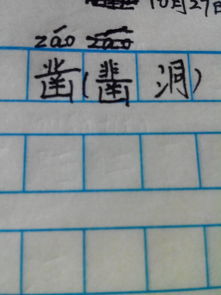 10月27日
záo
凿(凿洞)